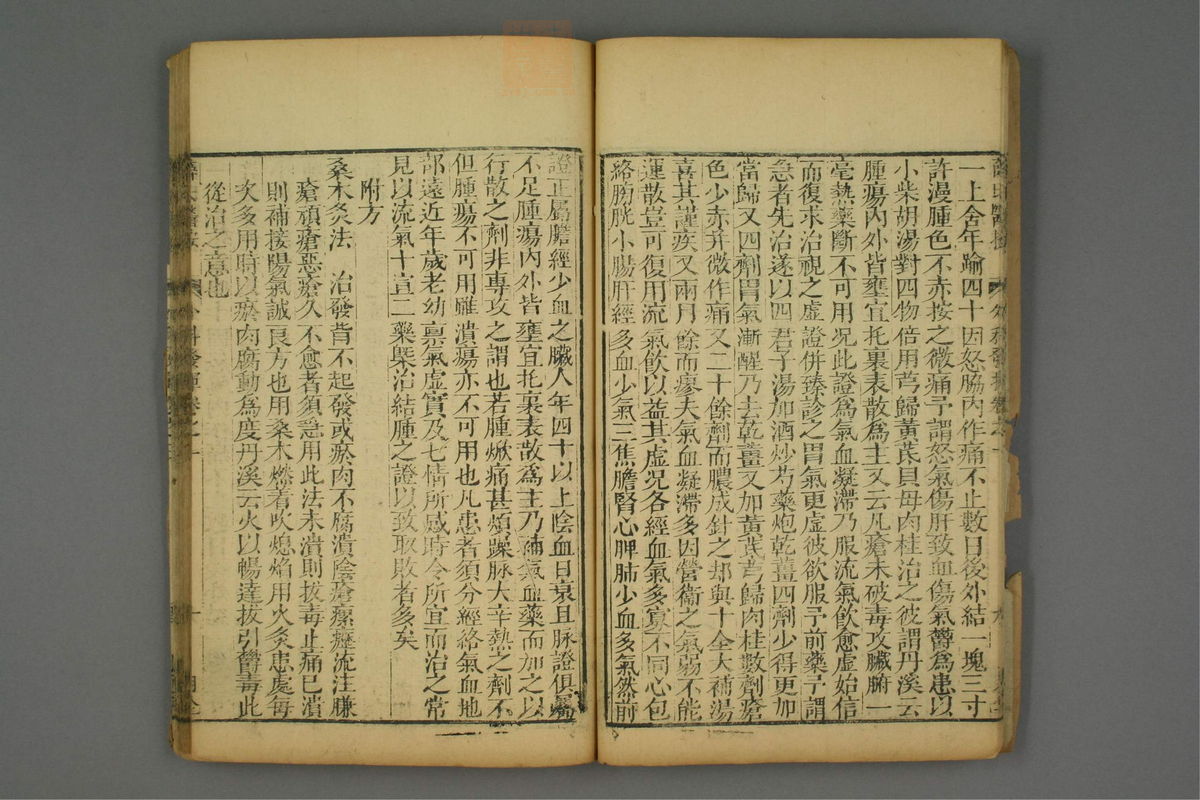 一上舍年踰四十因怒脇內作痛不止數日後外結一塊三寸
許漫腫色不赤按之微痛予謂怒氣傷肝致血傷氣鬱爲患以
小柴胡湯對四物倍用芎歸黃芪貝母肉桂治之彼謂丹溪云
腫瘍內外皆壅宜托裏表散爲主又云凡瘡未破毒攻臟腑一
毫熱藥斷不可用况此證爲氣血凝滯乃服流氣飲愈虛始信
而復求治視之虛證併臻診之胃氣更虛彼欲服予前藥予謂
急者先治遂以四君子湯加酒炒芍藥炮乾薑四劑少得更加
當歸又四劑胃氣漸醒乃去乾薑又加黃芪芎歸肉桂數劑瘡
色少赤并微作痛又二十餘劑而膿成針之却與十全大補湯
喜其謹疾又兩月餘而瘳夫氣血凝滯多因營衛之氣弱不能
運散豈可復用流氣飲以益其虛况各經血氣多寡不同心包
絡膀胱小腸肝經多血少氣三焦膽腎心脾肺少血多氣然前
證正屬膽經少血之臟人年四十以上陰血日衰且脉證俱屬
不足腫瘍內外皆壅宜托裏表散爲主乃補氣血藥而加之以
行散之劑非專攻之謂也若腫焮痛甚煩躁脉大辛熱之劑不
但腫瘍不可用雖潰瘍亦不可用也凡患者須分經絡氣血地
部遠近年歲老幼稟氣虛實及七情所感時令所宜而治之常
見以流氣十宣二藥槩治結腫之證以致取敗者多矣
附方
桑木灸法 治發背不起發或瘀肉不腐潰陰瘡瘰癧流注臁
瘡頑瘡惡瘡久不愈者須急用此法未潰則拔毒止痛已潰
則補接陽氣誠良方也用桑木燃着吹熄焰用火灸患處每
次多用時以瘀肉腐動爲度丹溪云火以暢達拔引鬱毒此
從治之意也